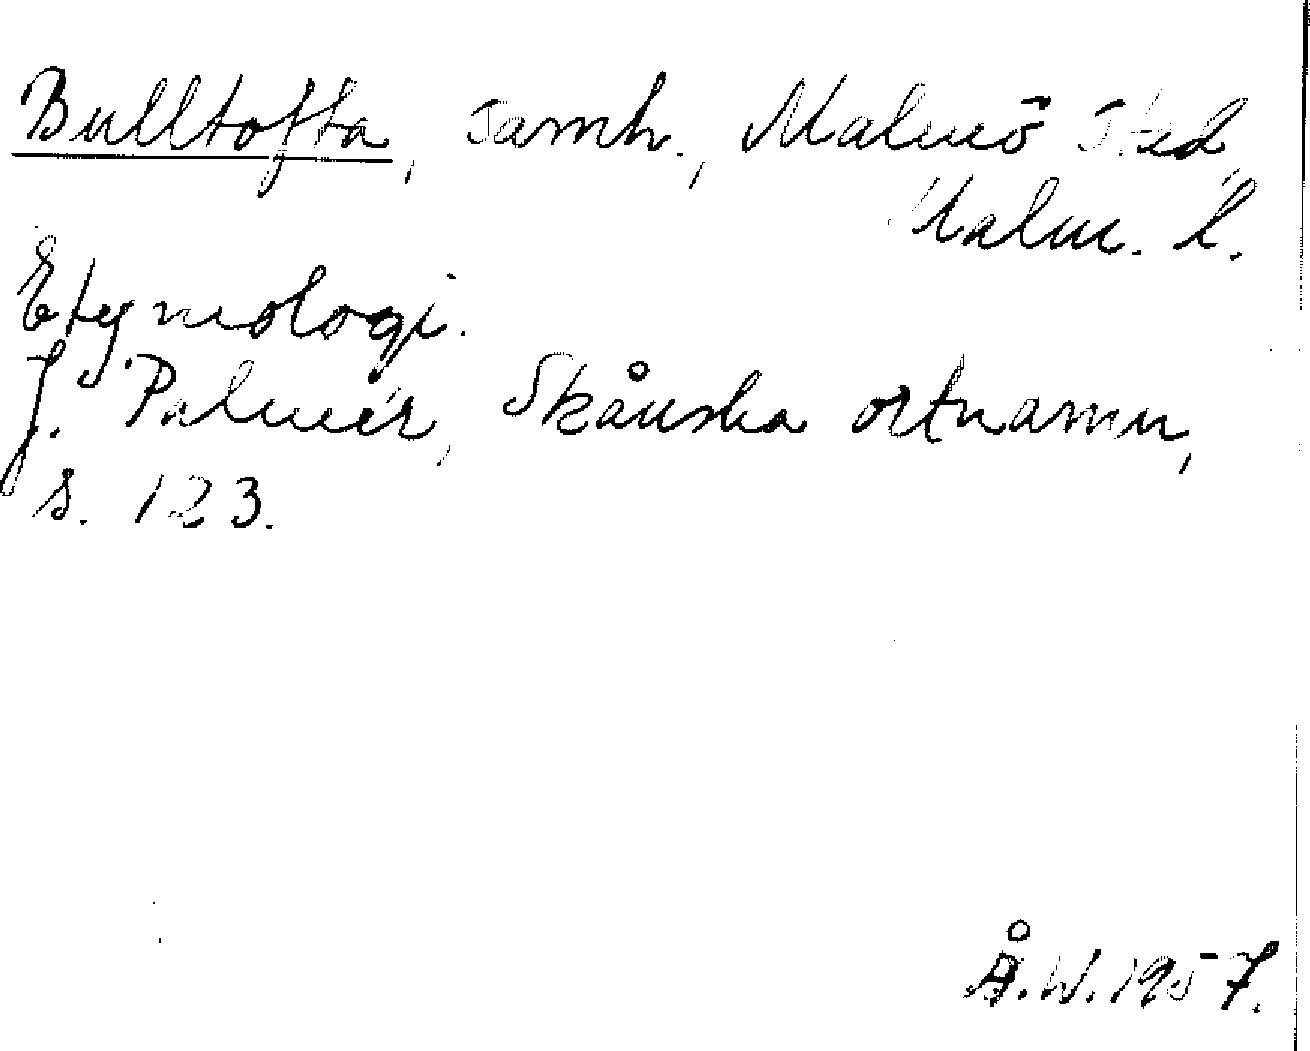 Bulltofta, samh., Malmö stad,
Malm. l.
Etymologi.
J. Palmér, Skånska ortnamn,
s. 123.
Å.W. 1957.